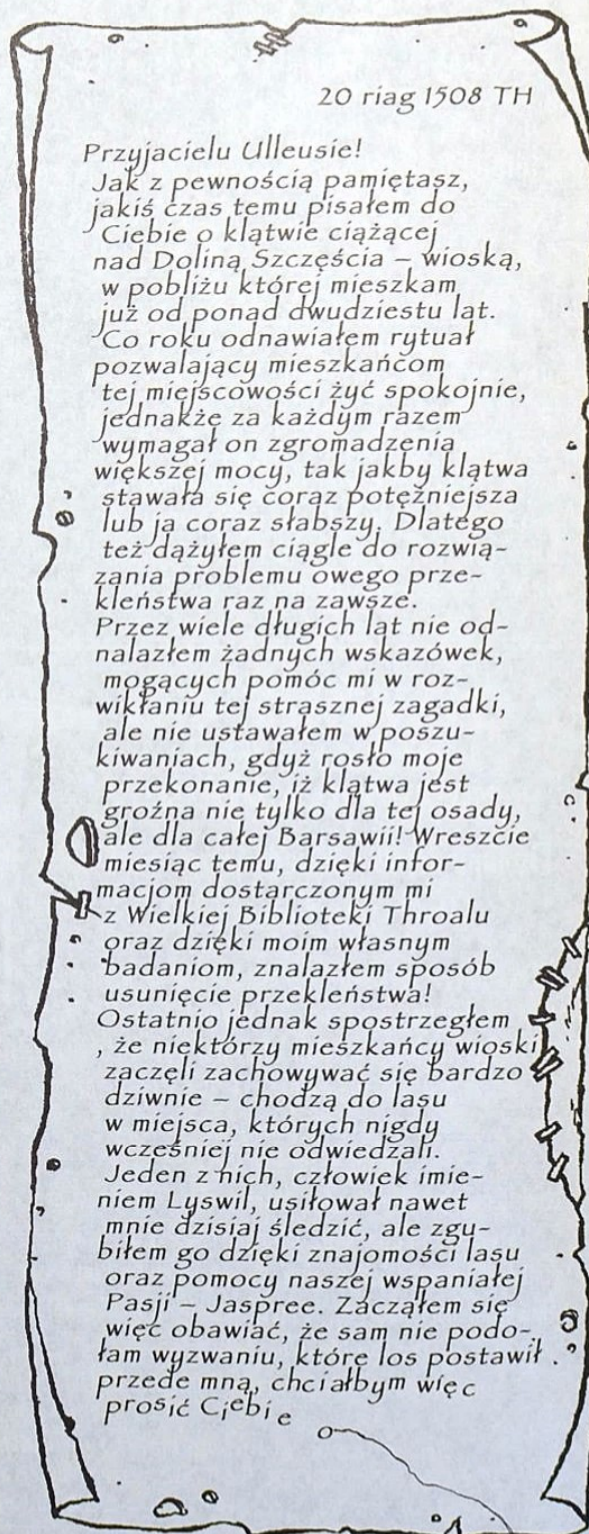 20 riag 1508 TH
Przyjacielu Ulleusie!
Jak z pewnością pamiętasz,
jakiś czas temu pisałem do
Ciebie o klątwie ciążącej
nad Doliną Szczęścia – wioską,
w pobliżu której mieszkam
już od ponad dwudziestu lat.
Co roku odnawiałem rytuał
pozwalający mieszkańcom
tej miejscowości żyć spokojnie,
jednakże za każdym razem
wymagał on zgromadzenia
większej mocy, tak jakby klątwa
stawała się coraz potężniejsza
lub ja coraz słabszy. Dlatego
też dążyłem ciągle do rozwią-
zania problemu owego prze-
kleństwa raz na zawsze.
Przez wiele długich lat nie od-
nalazłem żadnych wskazówek,
mogących pomóc mi w roz-
wikłaniu tej strasznej zagadki,
ale nie ustawałem w poszu-
kiwaniach, gdyż rosło moje
przekonanie, iż klątwa jest
groźna nie tylko dla tej osady,
ale dla całej Barsawii! Wreszcie
miesiąc temu, dzięki infor-
macjom dostarczonym mi
z Wielkiej Biblioteki Throalu
oraz dzięki moim własnym
badaniom, znalazłem sposób
usunięcie przekleństwa!
Ostatnio jednak spostrzegłem
, że niektórzy mieszkańcy wioski
zaczęli zachowywać się bardzo
dziwnie – chodzą do lasu
w miejsca, których nigdy
wcześniej nie odwiedzali.
Jeden z nich, człowiek imie-
niem Lyswil, usiłował nawet
mnie dzisiaj śledzić, ale zgu-
biłem go dzięki znajomości lasu
oraz pomocy naszej wspaniałej
Pasji – Jaspree. Zacząłem się
więc obawiać, że sam nie podo-
łam wyzwaniu, które los postawił
przede mną, chciałbym więc
prosić Ciebie